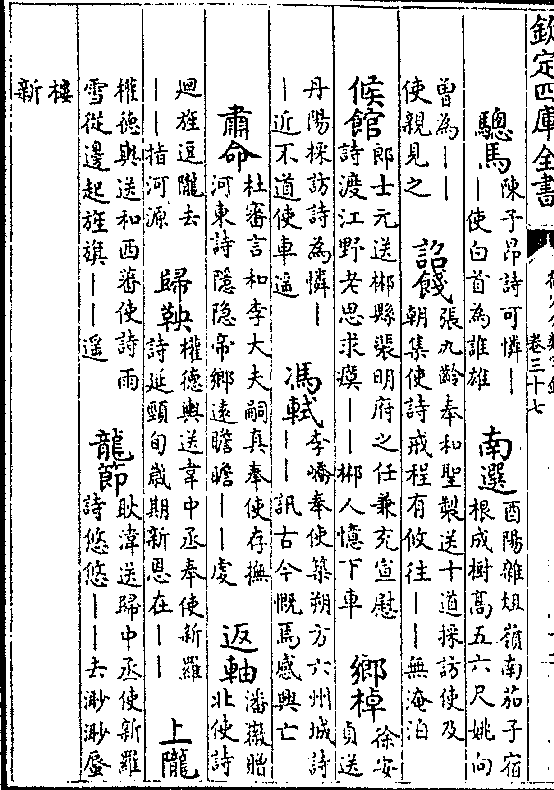 欽定四庫全書
卷三十七
驄馬 陳子昂詩可憐｜｜使白首為誰雄 南選 酉陽雜俎嶺南茄子宿根成樹髙五六尺姚向
曾為｜｜使親見之 詔餞 張九齡奉和聖製送十道採訪使及朝集使詩戒程有攸往｜｜無淹泊
候館 郎士元送郴縣裴明府之任兼充宣慰詩渡江野老思求瘼｜｜郴人憶下車 鄉棹 徐安貞送
丹陽採訪詩為憐｜｜近不道使車遥 馮軾 李嶠奉使築朔方六州城詩｜｜訊古今慨焉感興亡
肅命 杜審言和李大夫嗣真奉使存撫河東詩隱隱帝鄉遠瞻瞻｜｜虔 返軸 潘徽貽北使詩
廻旌逗隴去｜｜指河源 歸鞅 權德輿送韋中丞奉使新羅詩延頸旬歲期新恩在｜｜ 上隴
權德輿送和西蕃使詩雨雪從邊起旌旗｜｜遥 龍節 耿湋送歸中丞使新羅詩悠悠｜｜去渺渺蜃
樓新